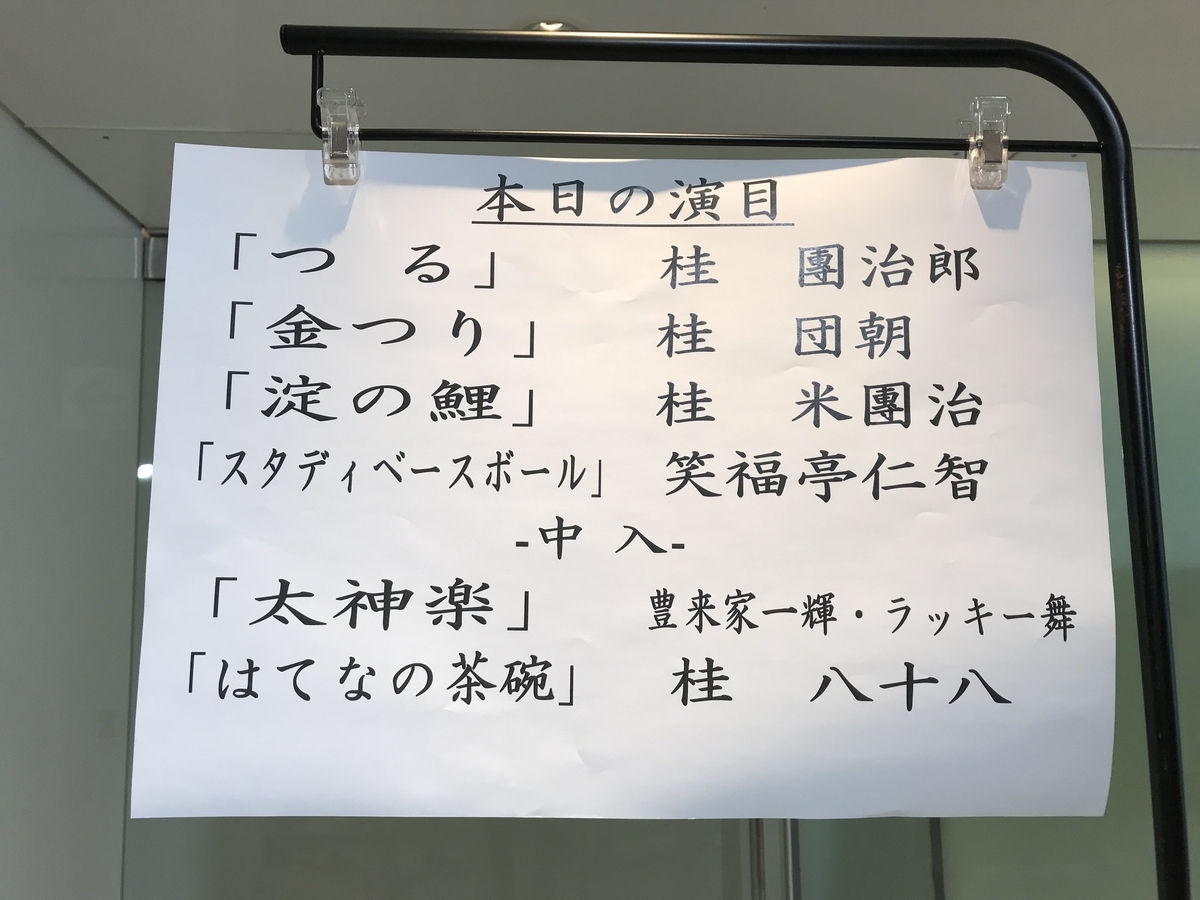 本日の演目
「つ　る」　桂　團治郎
「金つり」　桂　団朝
「淀の鯉」　桂　米團治
「スタディベースボール」　笑福亭仁智
-中 入-
「太神楽」　豊来家一輝・ラッキー舞
「はてなの茶碗」　桂　八十八